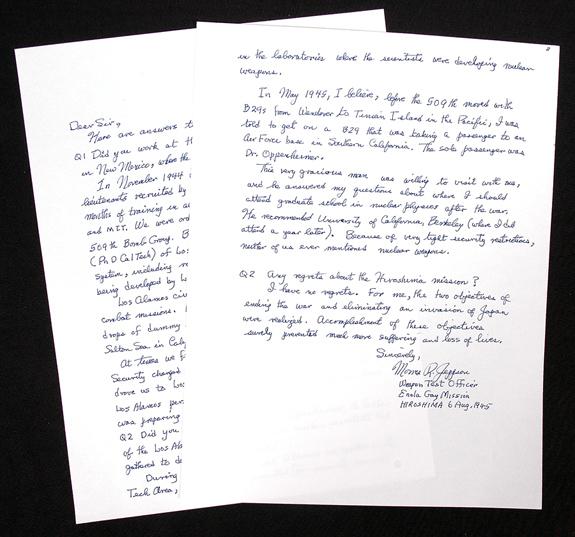 Dear Sir,
Here are answers t
Q1 Did you work at th
in New Mexico, where the
In November 1944
lieutenants recruited by
months of training in
and MIT. We were ord
509th Bomb Group. B
(Ph D Cal Tech) of Los
system, including
being developed by L
Los Alamos civ
combat missions.
drops of dummy
Salton Sea in Cal
At times we f
Security charged
drove us to Los
Los Alamos per
was preparing
Q2 Did you
of the Los Ala
gathered to de
During
Tech Area,
2
in the laboratories where the scientists were developing nuclear
weapons.
In May 1945, I believe, before the 509th moved with
B29s from Wendover to Tinian Island in the Pacific, I was
told to get on a B29 that was taking a passenger to an
Air Force base in Southern California. The sole passenger was
Dr. Oppenheimer.
This very gracious man was willing to visit with me,
and he answered my questions about where I should
attend graduate school in nuclear physics after the war.
He recommended University of California, Berkeley (where I did
attend a year later). Because of very tight security restrictions,
neither of us ever mentioned nuclear weapons.
Q2 Any regrets about the Hiroshima mission?
I have no regrets. For me, the two objectives of
ending the war and eliminating an invasion of Japan
were realized. Accomplishment of these objectives
surely prevented much more suffering and loss of lives.
Sincerely,
Morris R. Jeppson
Weapon Test Officer
Enola Gay Mission
HIROSHIMA 6 Aug. 1945